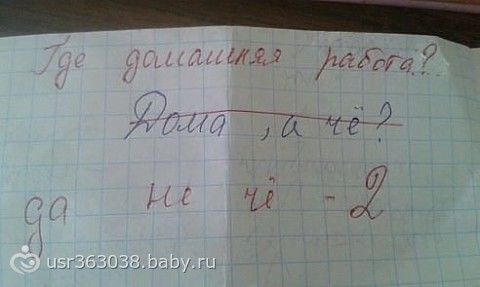 Где домашняя работа?
Дома, а чё?
да не чё - 2
usr363038.baby.ru